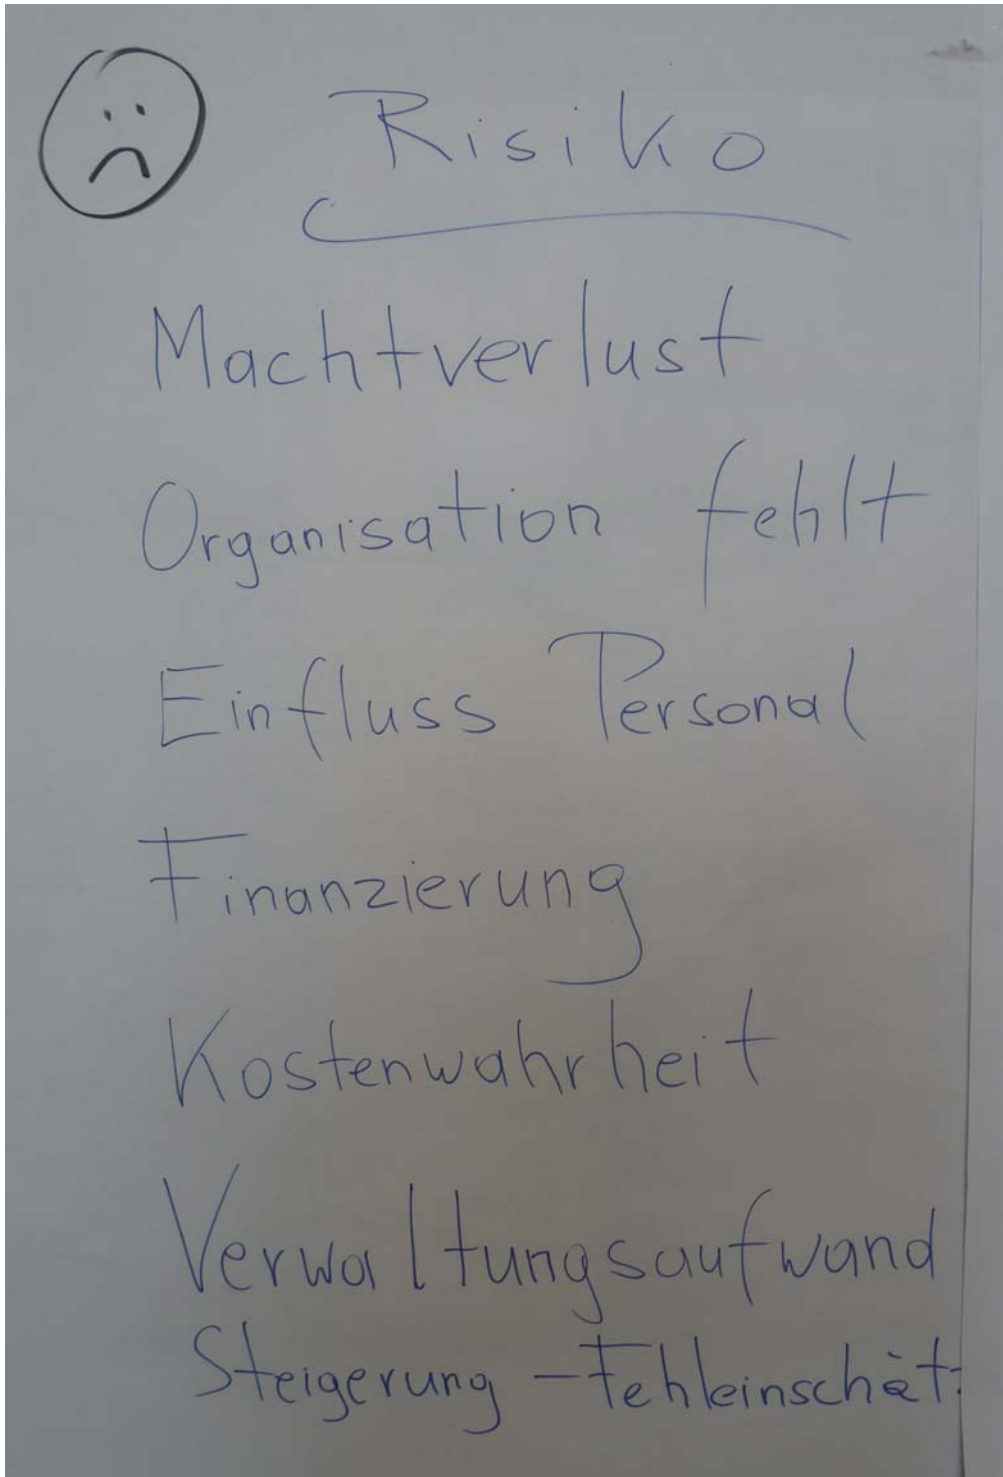 Risiko
Machtverlust
Organisation fehlt
Einfluss Personal
Finanzierung
Kostenwahrheit
Verwaltungsaufwand
Steigerung - Fehleinschät